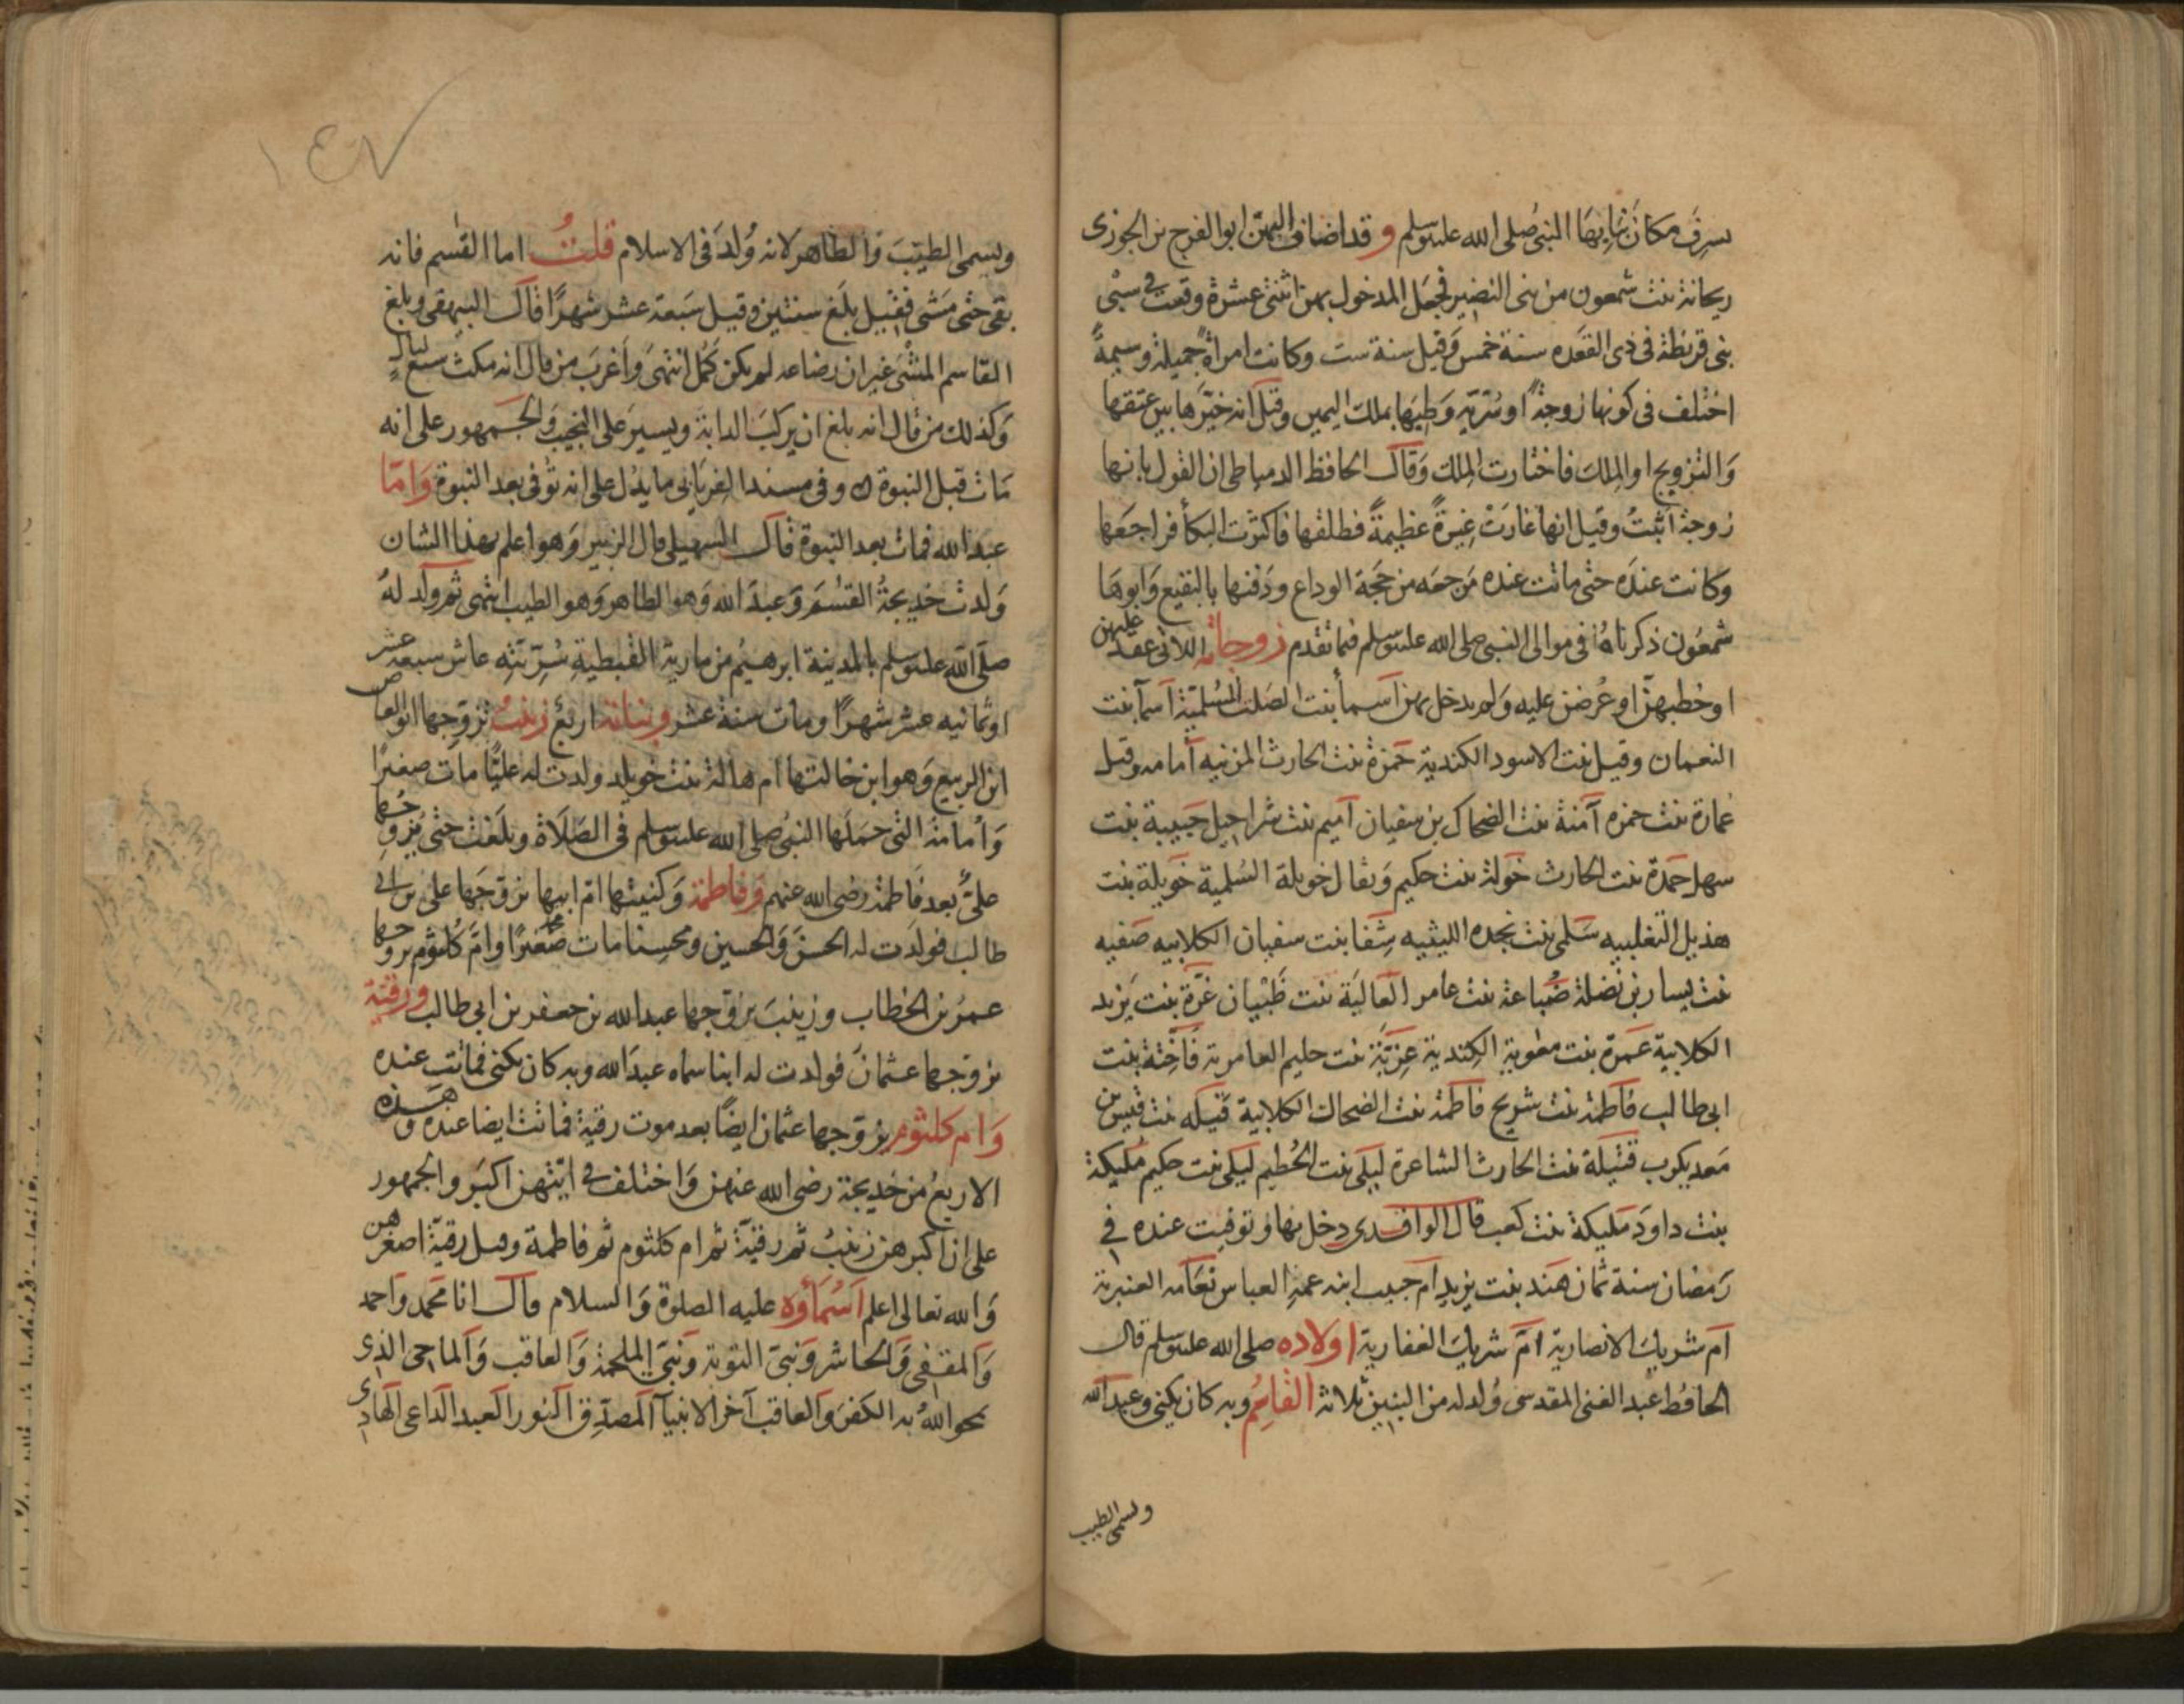 بسرف مكان بنابها النبي صلى الله عليه وسلم وقد اضاف اليهن ابو الفرج بن الجوزى
ريحانة بنت شمعون من بنى النضير فجعل المدخول بهن اثنتى عشرة وقعت فى سبى
بنى قريظة فى ذى القعده سنة خمس وقيل سنة ست وكانت امراة جميلة وسيمة
اختلف فى كونها زوجة او سرية وطيها بملك اليمين وقيل انه خيرها بين عتقها
والتزويج او الملك فاختارت الملك وقال الحافظ الدمياطى ان القول بانها
زوجة اثبت وقيل انها غارت غيرة عظيمة فطلقها فاكثرت البكأ فراجعها
وكانت عنده حتى ماتت عنده مرجعه من حجة الوداع ودفنها بالبقيع وابوها
شمعون ذكرناه فى موالى النبى صلى الله عليه وسلم فيما تقدم زوجاته اللاتى عقد عليهن
او خطبهن او عرضن عليه ولم يدخل بهن اسمأ بنت الصلت السلمية اسمآ بنت
النعمان وقيل بنت الاسود الكندية حمزة بنت الحارث المزنيه أمامه وقيل
عمارة بنت حمزه آمنة بنت الضحاك بن سفيان اميم بنت شراحيل حبيبة بنت
سهل حمدة بنت الحارث خولة بنت حكيم ويقال خويلة السلمية خويلة بنت
هذيل التغلبيه سلمى بنت نجده الليثيه شفا بنت سفيان الكلابيه صفيه
بنت يسار بن نضلة ضباعة بنت عامر العالية بنت ظبيان غرة بنت يزيد
الكلابية عمرة بنت معوية الكندية عزية بنت حليم العامرية فاختة بنت
ابى طالب فاطمة بنت شريح فاطمة بنت الضحاك الكلابية قتيله بنت قيس بن
معديكرب قتيلة بنت الحارث الشاعرة ليلى بنت الحطيم ليلى بنت حكيم مليكة
بنت داود مليكة بنت كعب قال الواقدى دخل بها وتوفيت عنده فى
رمضان سنة ثمان هند بنت يزيد ام حبيب ابنه عمه العباس نعامه العنبرية
ام شريك الانصارية ام شريك الغفارية اولاده صلى الله عليه وسلم قال
الحافظ عبد الغنى المقدسى ولد له من البنين ثلاثة القاسم وبه كان يكنى وعبد الله
ويسمى الطيب
١٤٧
ويسمى الطيب والطاهر لانه ولد فى الاسلام قلت اما القسم فانه
بقى حتى مشى فقيل بلغ سنتين وقيل سبعة عشر شهرا قال البيهقى وبلغ
القاسم المشى غير ان رضاعه لم يكن كمل انتهى واغرب من قال انه مكث سبع ليال
وكذلك من قال انه بلغ ان يركب الدابة ويسير على النجيب والجمهور على انه
مات قبل النبوة وفى مسند الفريابى ما يدل على انه توفى بعد النبوة واما
عبد الله فمات بعد النبوة قال السهيلى قال الزبير وهو اعلم بهذا الشان
ولدت خديجة القسم وعبد الله وهو الطاهر وهو الطيب انتهى ثم ولد له
صلى الله عليه وسلم بالمدينة ابرهيم من مارية القبطية سريته عاش سبعه عشر
او ثمانيه عشر شهرا ومات سنة عشر وبناته اربع زينب تزوجها ابو العاص
ابن الربيع وهو ابن خالتها ام هالة بنت خويلد ولدت له عليا مات صغيرا
وأمامة التى حملها النبى صلى الله عليه وسلم فى الصلاة وبلغت حتى تزوجها
على بعد فاطمة رضى الله عنهم وفاطمة وكنيتها ام ابيها تزوجها على بن ابى
طالب فولدت له الحسن والحسين ومحسنا مات صغيرا وام كلثوم تزوجها
عمر بن الخطاب وزينب تزوجها عبد الله بن جعفر بن ابى طالب ورقية
تزوجها عثمان فولدت له ابنا سماه عبد الله وبه كان يكنى فماتت عنده
وام كلثوم تزوجها عثمان ايضا بعد موت رقية فماتت ايضا عنده وهذه
الاربع من خديجة رضى الله عنهن واختلف فى ايتهن اكبر والجمهور
على ان اكبرهن زينب ثم رقية ثم ام كلثوم ثم فاطمة وقيل رقية اصغرهن
والله تعالى اعلم اسمأوه عليه الصلوة والسلام قال انا محمد واحمد
والمقفى والحاشر ونبى التوبة ونبى الملحمة والعاقب والماحى الذى
يمحو الله به الكفر والعاقب آخر الانبيآ المصدق النور العبد الداعى الهادى